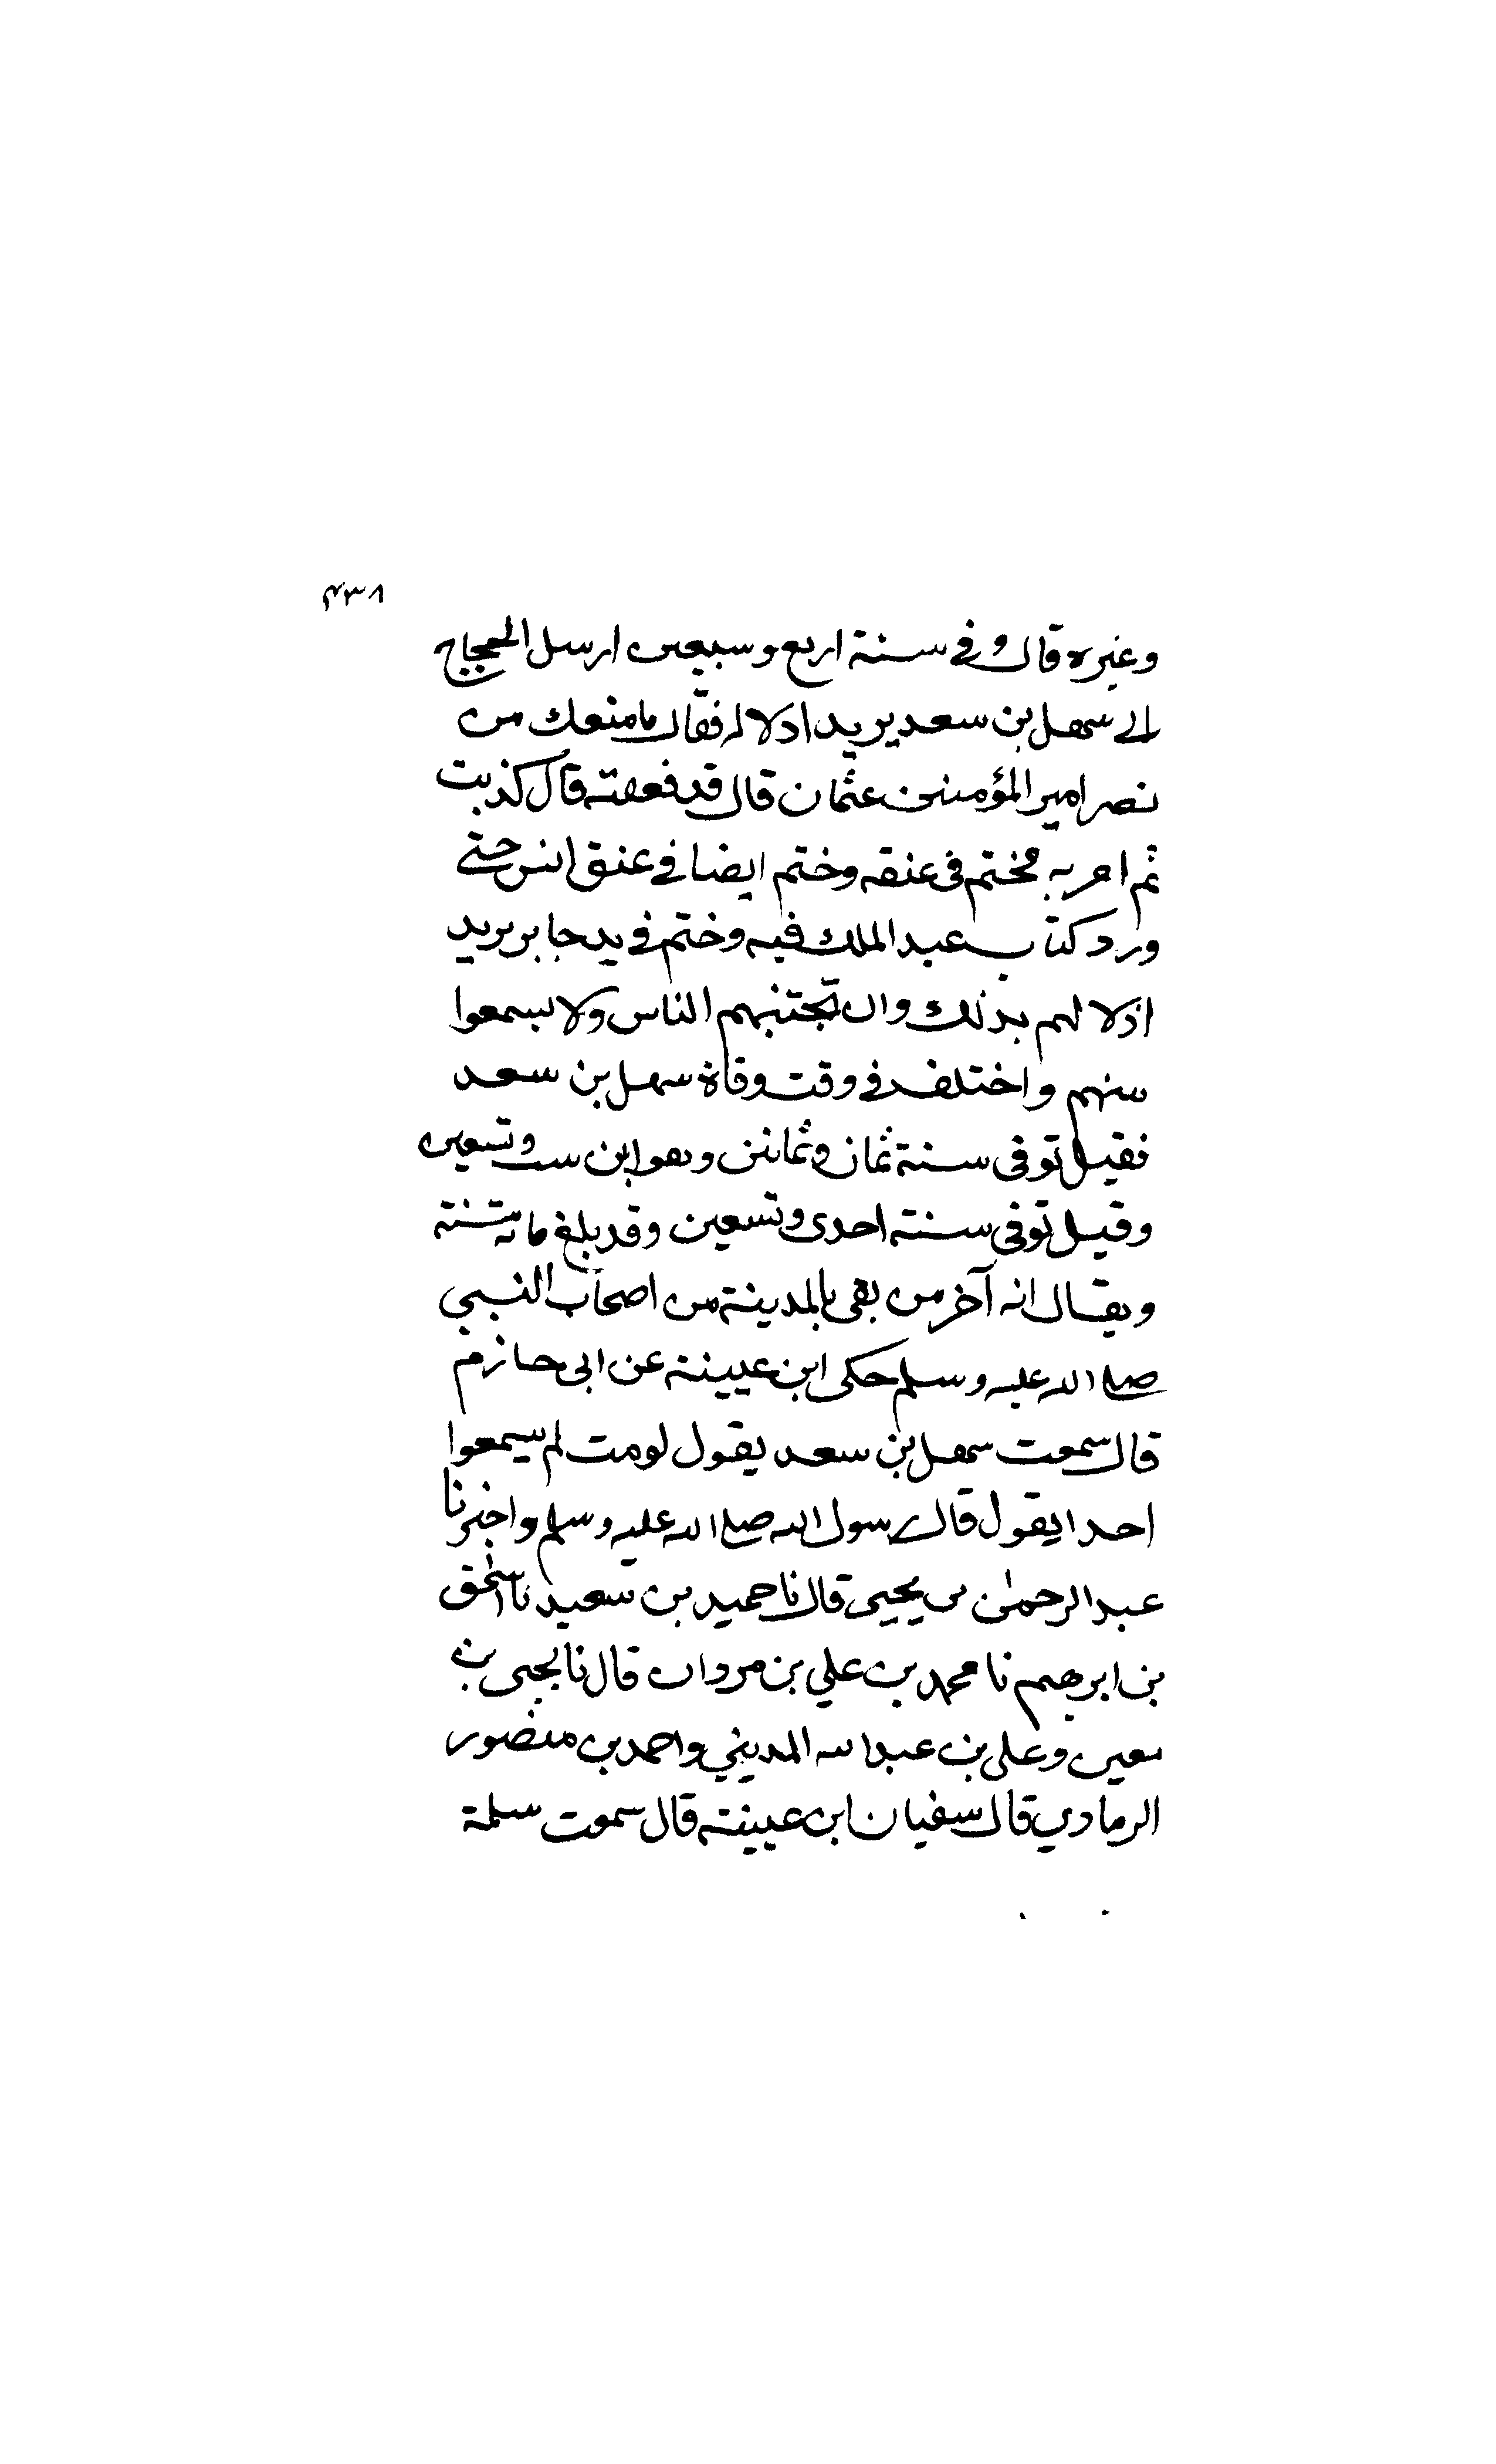 ٤٣٨
وغيره قال وفي سنة اربع وسبعين ارسل الحجاج
الى سهل بن سعد يريد اذلاله فقال ما منعك من
نصر امير المؤمنين عثمان قال قد فعلته قال كذبت
ثم امر به فختم في عنقه وختم ايضا في عنق انس حتى
ورد كتاب عبد الملك فيه وختم في يد جابر يريد
اذلالهم بذلك وان تجتنبهم الناس ولا يسمعوا
منهم واختلف في وقت وفاة سهل بن سعد
فقيل توفي سنة ثمان وثمانين وهو ابن ست وتسعين
وقيل توفي سنة احدى وتسعين وقد بلغ مائة سنة
ويقال انه آخر من بقي بالمدينة من اصحاب النبي
صلى الله عليه وسلم حكى ابن عيينة عن ابي حازم
قال سمعت سهل بن سعد يقول لو مت لم يسمعوا
احدا يقول قال رسول الله صلى الله عليه وسلم واخبرنا
عبد الرحمن بن يحيى قال نا حميد بن سعيد نا اسحق
بن ابرهيم نا محمد بن علي بن مروان قال نا يحيى بن
معين وعلي بن عبد الله المديني واحمد بن منصور
الرمادي قال سفيان ابن عيينة قال سمعت سلمة